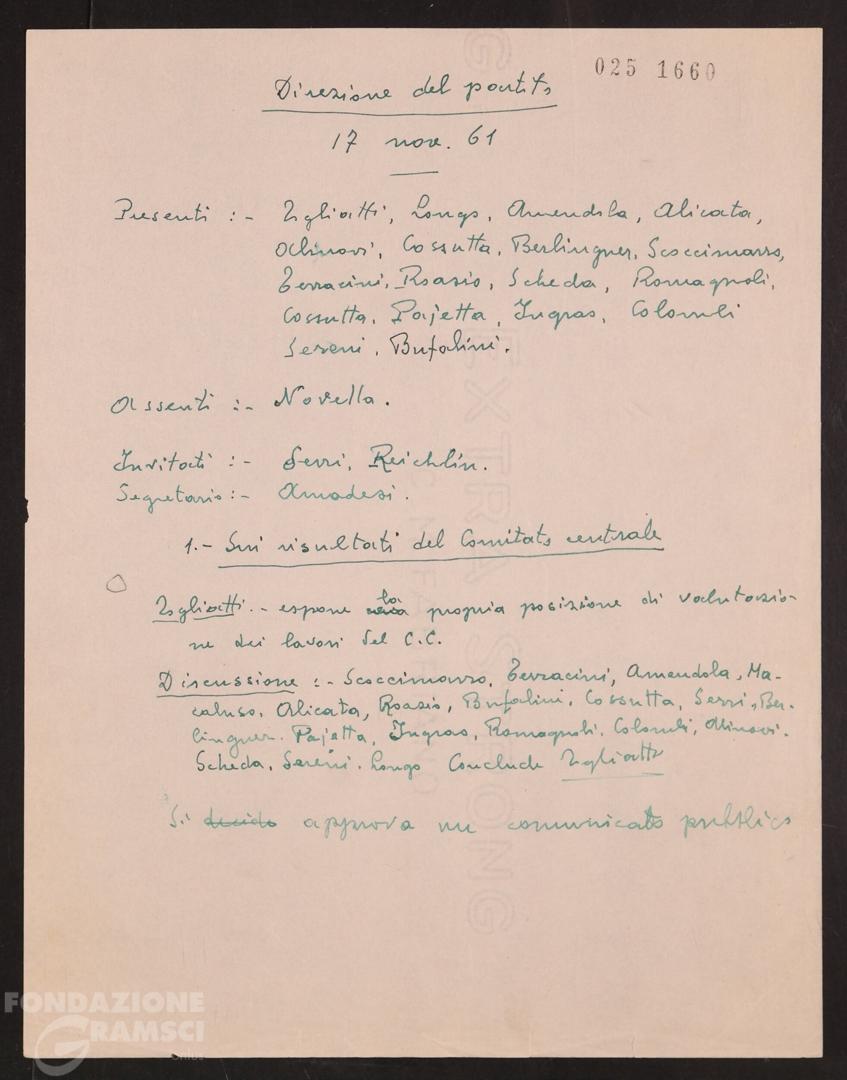 025 1660
Direzione del partito
17 nov. 61
Presenti :- Togliatti, Longo, Amendola, Alicata,
Alinovi, Cossutta, Berlinguer, Scoccimarro,
Terracini, Roasio, Scheda, Romagnoli,
Cossutta, Pajetta, Ingrao, Colombi
Sereni, Bufalini.
Assenti :- Novella.
Invitati :- Serri, Reichlin.
Segretario :- Amadesi.
1.- Sui risultati del Comitato centrale
Togliatti.- espone la propria posizione di valutazio-
ne dei lavori del C.C.
Discussione :- Scoccimarro, Terracini, Amendola, Ma-
caluso, Alicata, Roasio, Bufalini, Cossutta, Serri, Ber-
linguer. Pajetta, Ingrao, Romagnoli. Colombi, Alinovi.
Scheda, Sereni. Longo Conclude Togliatti
Si decide approva un comunicato pubblico
EXTRA STRONG
FONDAZIONE
GRAMSCI
Onlus